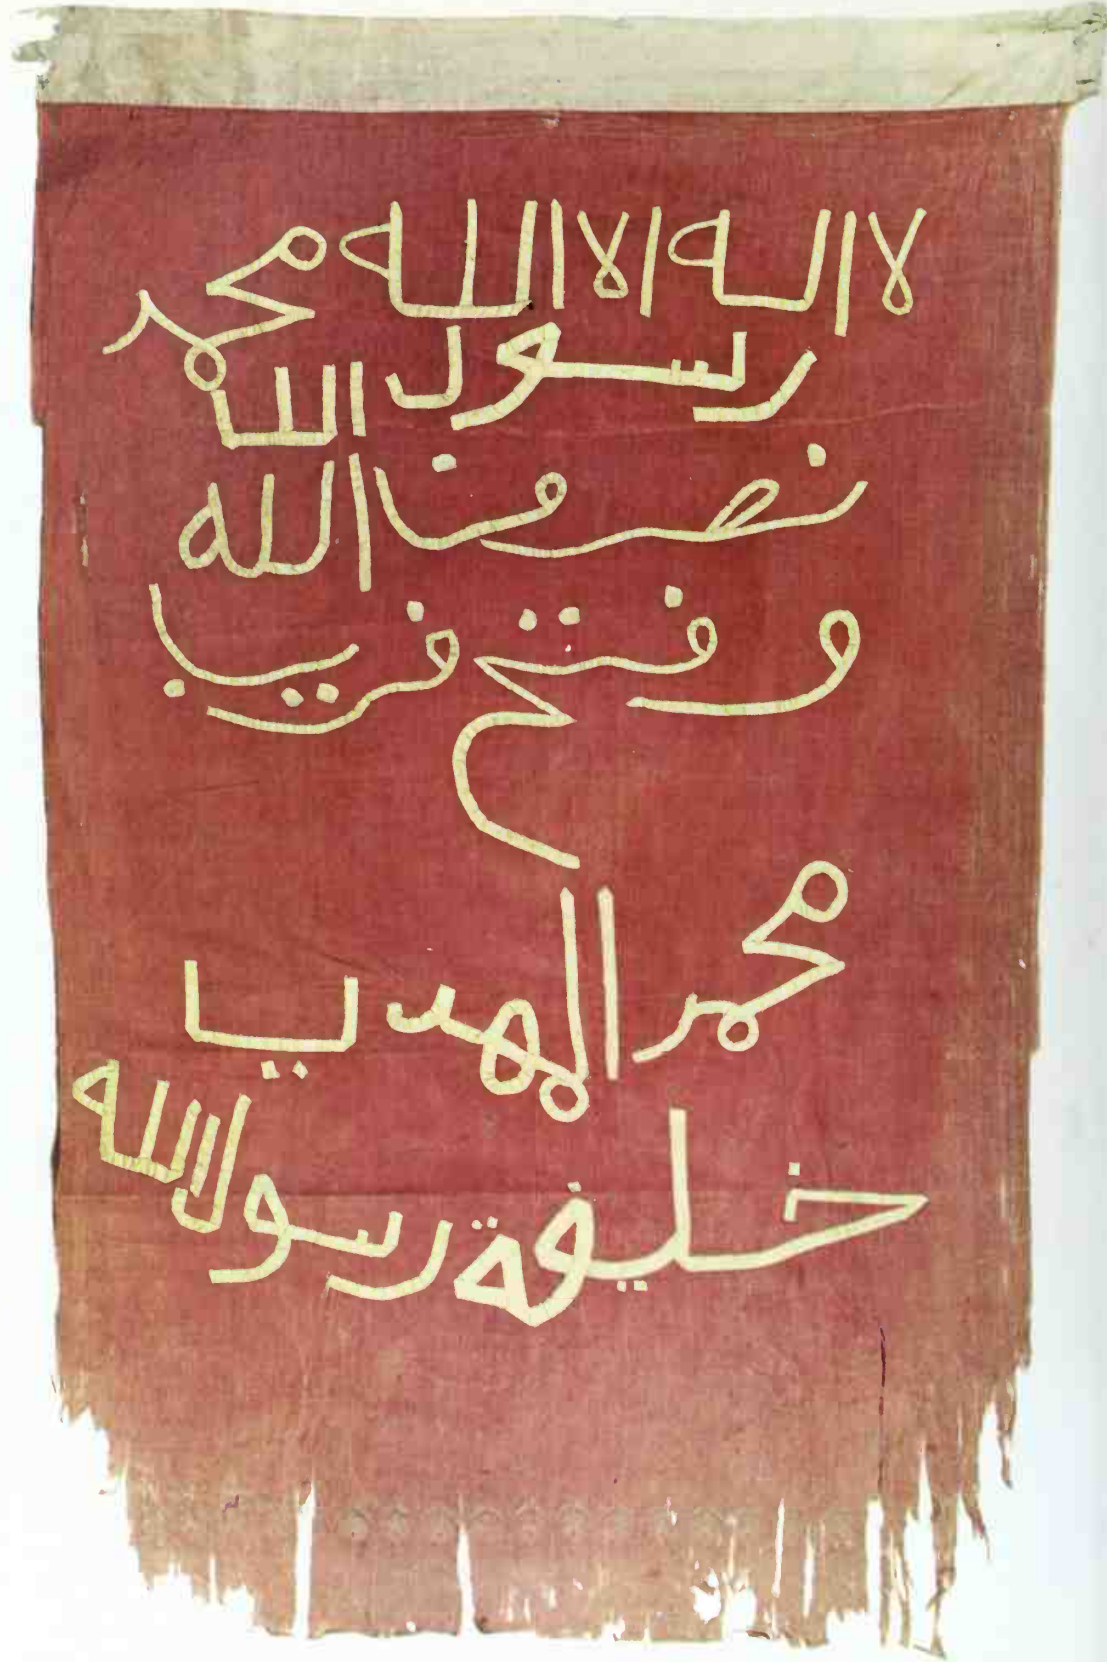 لا اله الا الله محمد
رسول الله
نصر من الله
وفتح قريب
محمد المهدي
خليفة رسول الله